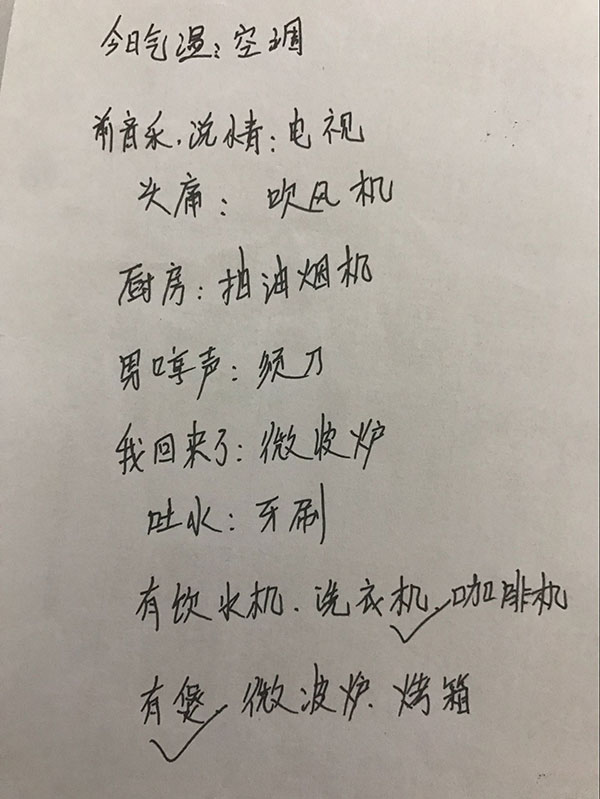 今日气温：空调
前音乐，说情：电视
头痛：吹风机
厨房：抽油烟机
男哼声：须刀
我回来了：微波炉
吐水：牙刷
有饮水机、洗衣机、咖啡机
有煲、微波炉、烤箱